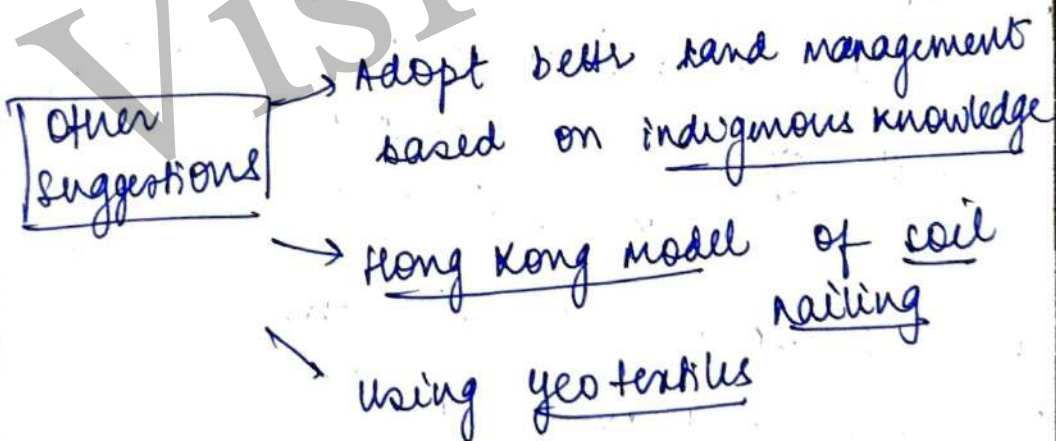 Other
suggestions
Adopt better land management
based on indigenous knowledge
Hong Kong model of soil
nailing
Using geotextiles